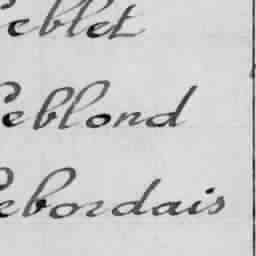 Leblet
Leblond
Lebordais